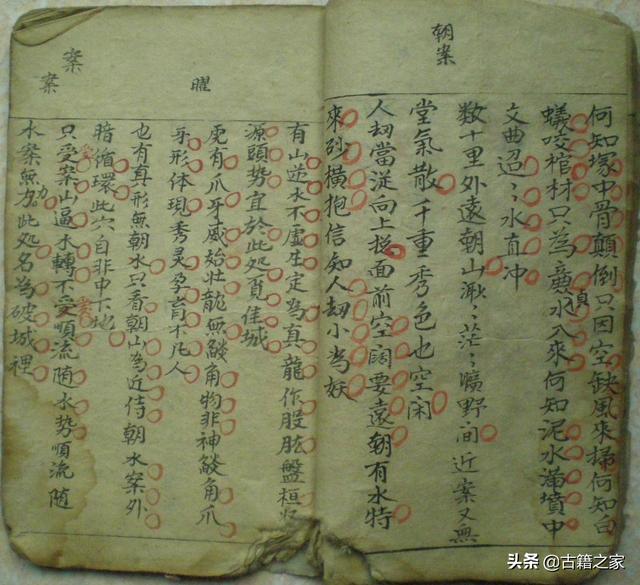 朝案
何知塚中骨顛倒只因空缺風來掃何知白
蟻咬棺材只為廣水入來何知泥水滿墳中
文曲迢迢水直冲
数十里外遠朝山渺渺茫茫曠野间近案又無
堂氣散千重秀色也空闲
人刼當従向上挨面前空闊要遠朝有水特
來砂横抱信知人刼小為妖
曜
有山逆水不虚生定為真龍作股肱盤桓
源頭势宜於此処覓佳城
虎有爪牙威始壮龍無鬣角物非神鬣角爪
牙形体現秀灵孕育不凡人
案
案
也有真形無朝水只看朝山為近侍朝水案外
暗循環此穴自非中下地
只受案山逼水轉不受順流随水势順流随
水案無力此処名為破城裡
头条 @古籍之家